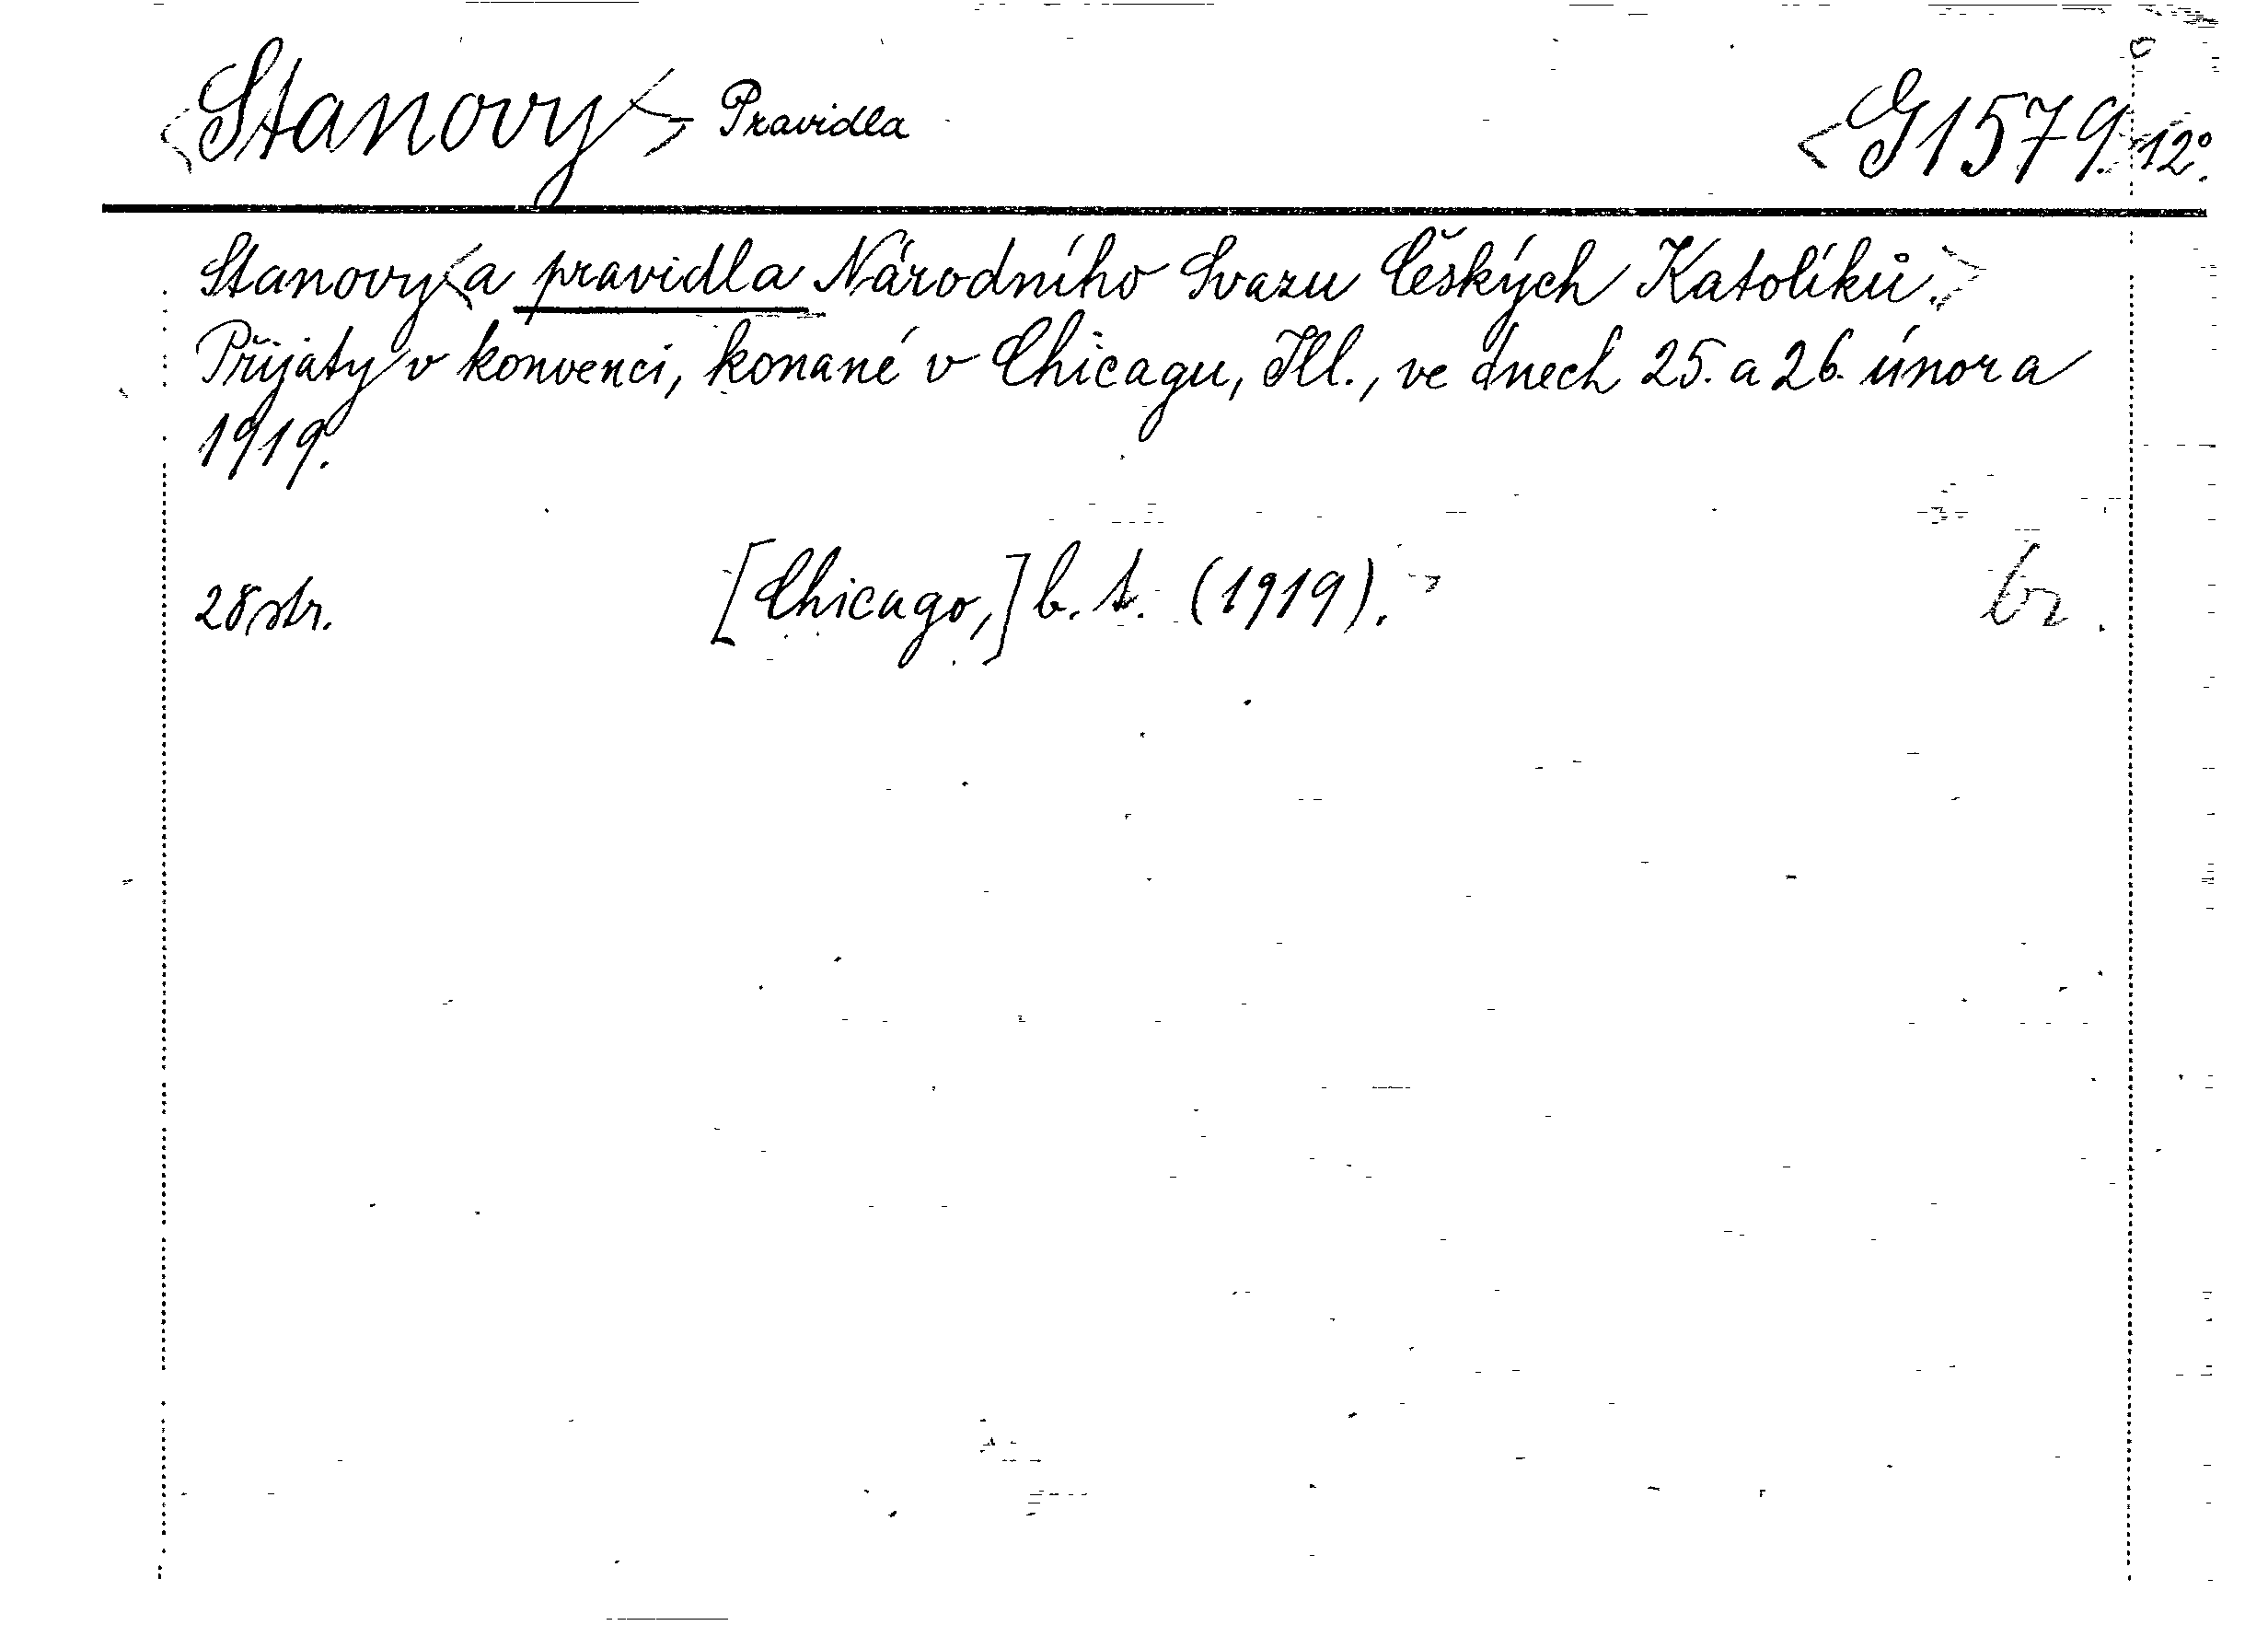 <Stanovy> Pravidla <G 1579. 12°.
Stanovy <a pravidla Národního Svazu Českých Katolíků.>
Přijaty v konvenci, konané v Chicagu, Ill., ve dnech 25. a 26. února
1919.
28 str. [Chicago,] b. t. (1919). br.